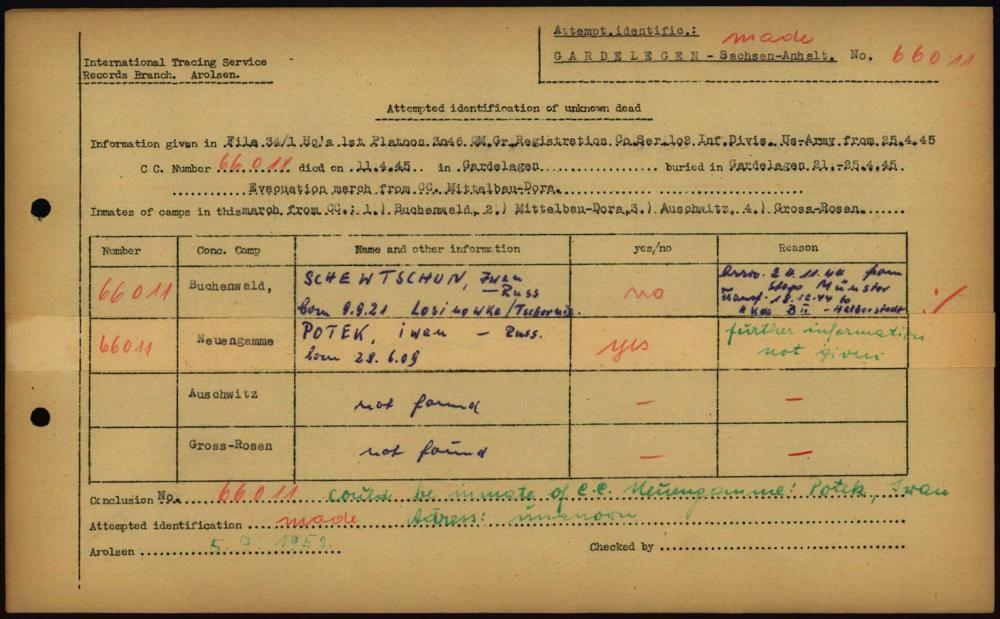 Attempt.identific.: made
International Tracing Service
Records Branch. Arolsen.
GARDELEGEN - Sachsen-Anhalt. No. 66011
Attempted identification of unknown dead
Information given in File 34/1 Hq's 1st Platoon 3046 QM.Gr.Registretion Co.Ser.1o2 Inf.Divis. Us-Army from 25.4.45
C C. Number 66011 died on 11.4.45.. in Gardelagen ........ buried in Gardelagen 21.-25.4.45
Evacuation march from CC. Mittelbau-Dora.
Inmates of camps in this march from CC.: 1.) Buchenwald, 2.) Mittelbau-Dora,3.) Auschwitz, 4.) Gross-Rosen.
Number Conc. Camp Name and other information yes/no Reason
66011 Buchenwald, SCHEWTSCHUN, Iwan
– Russ
born 9.9.21 Losinowka/Tschernig. no Arriv. 24.11.44 from
Stapo Münster
transf. 18.12.44 to
Kdo B II - Halberstadt
66011 Neuengamme POTEK, iwan – Russ.
born 28.6.09 yes further information
not given
Auschwitz not found – –
Gross-Rosen not found – –
Conclusion No. 66011 could be inmate of C.C. Neuengamme: Potek, Iwan
Attempted identification made Adress: unknown
Arolsen
Checked by